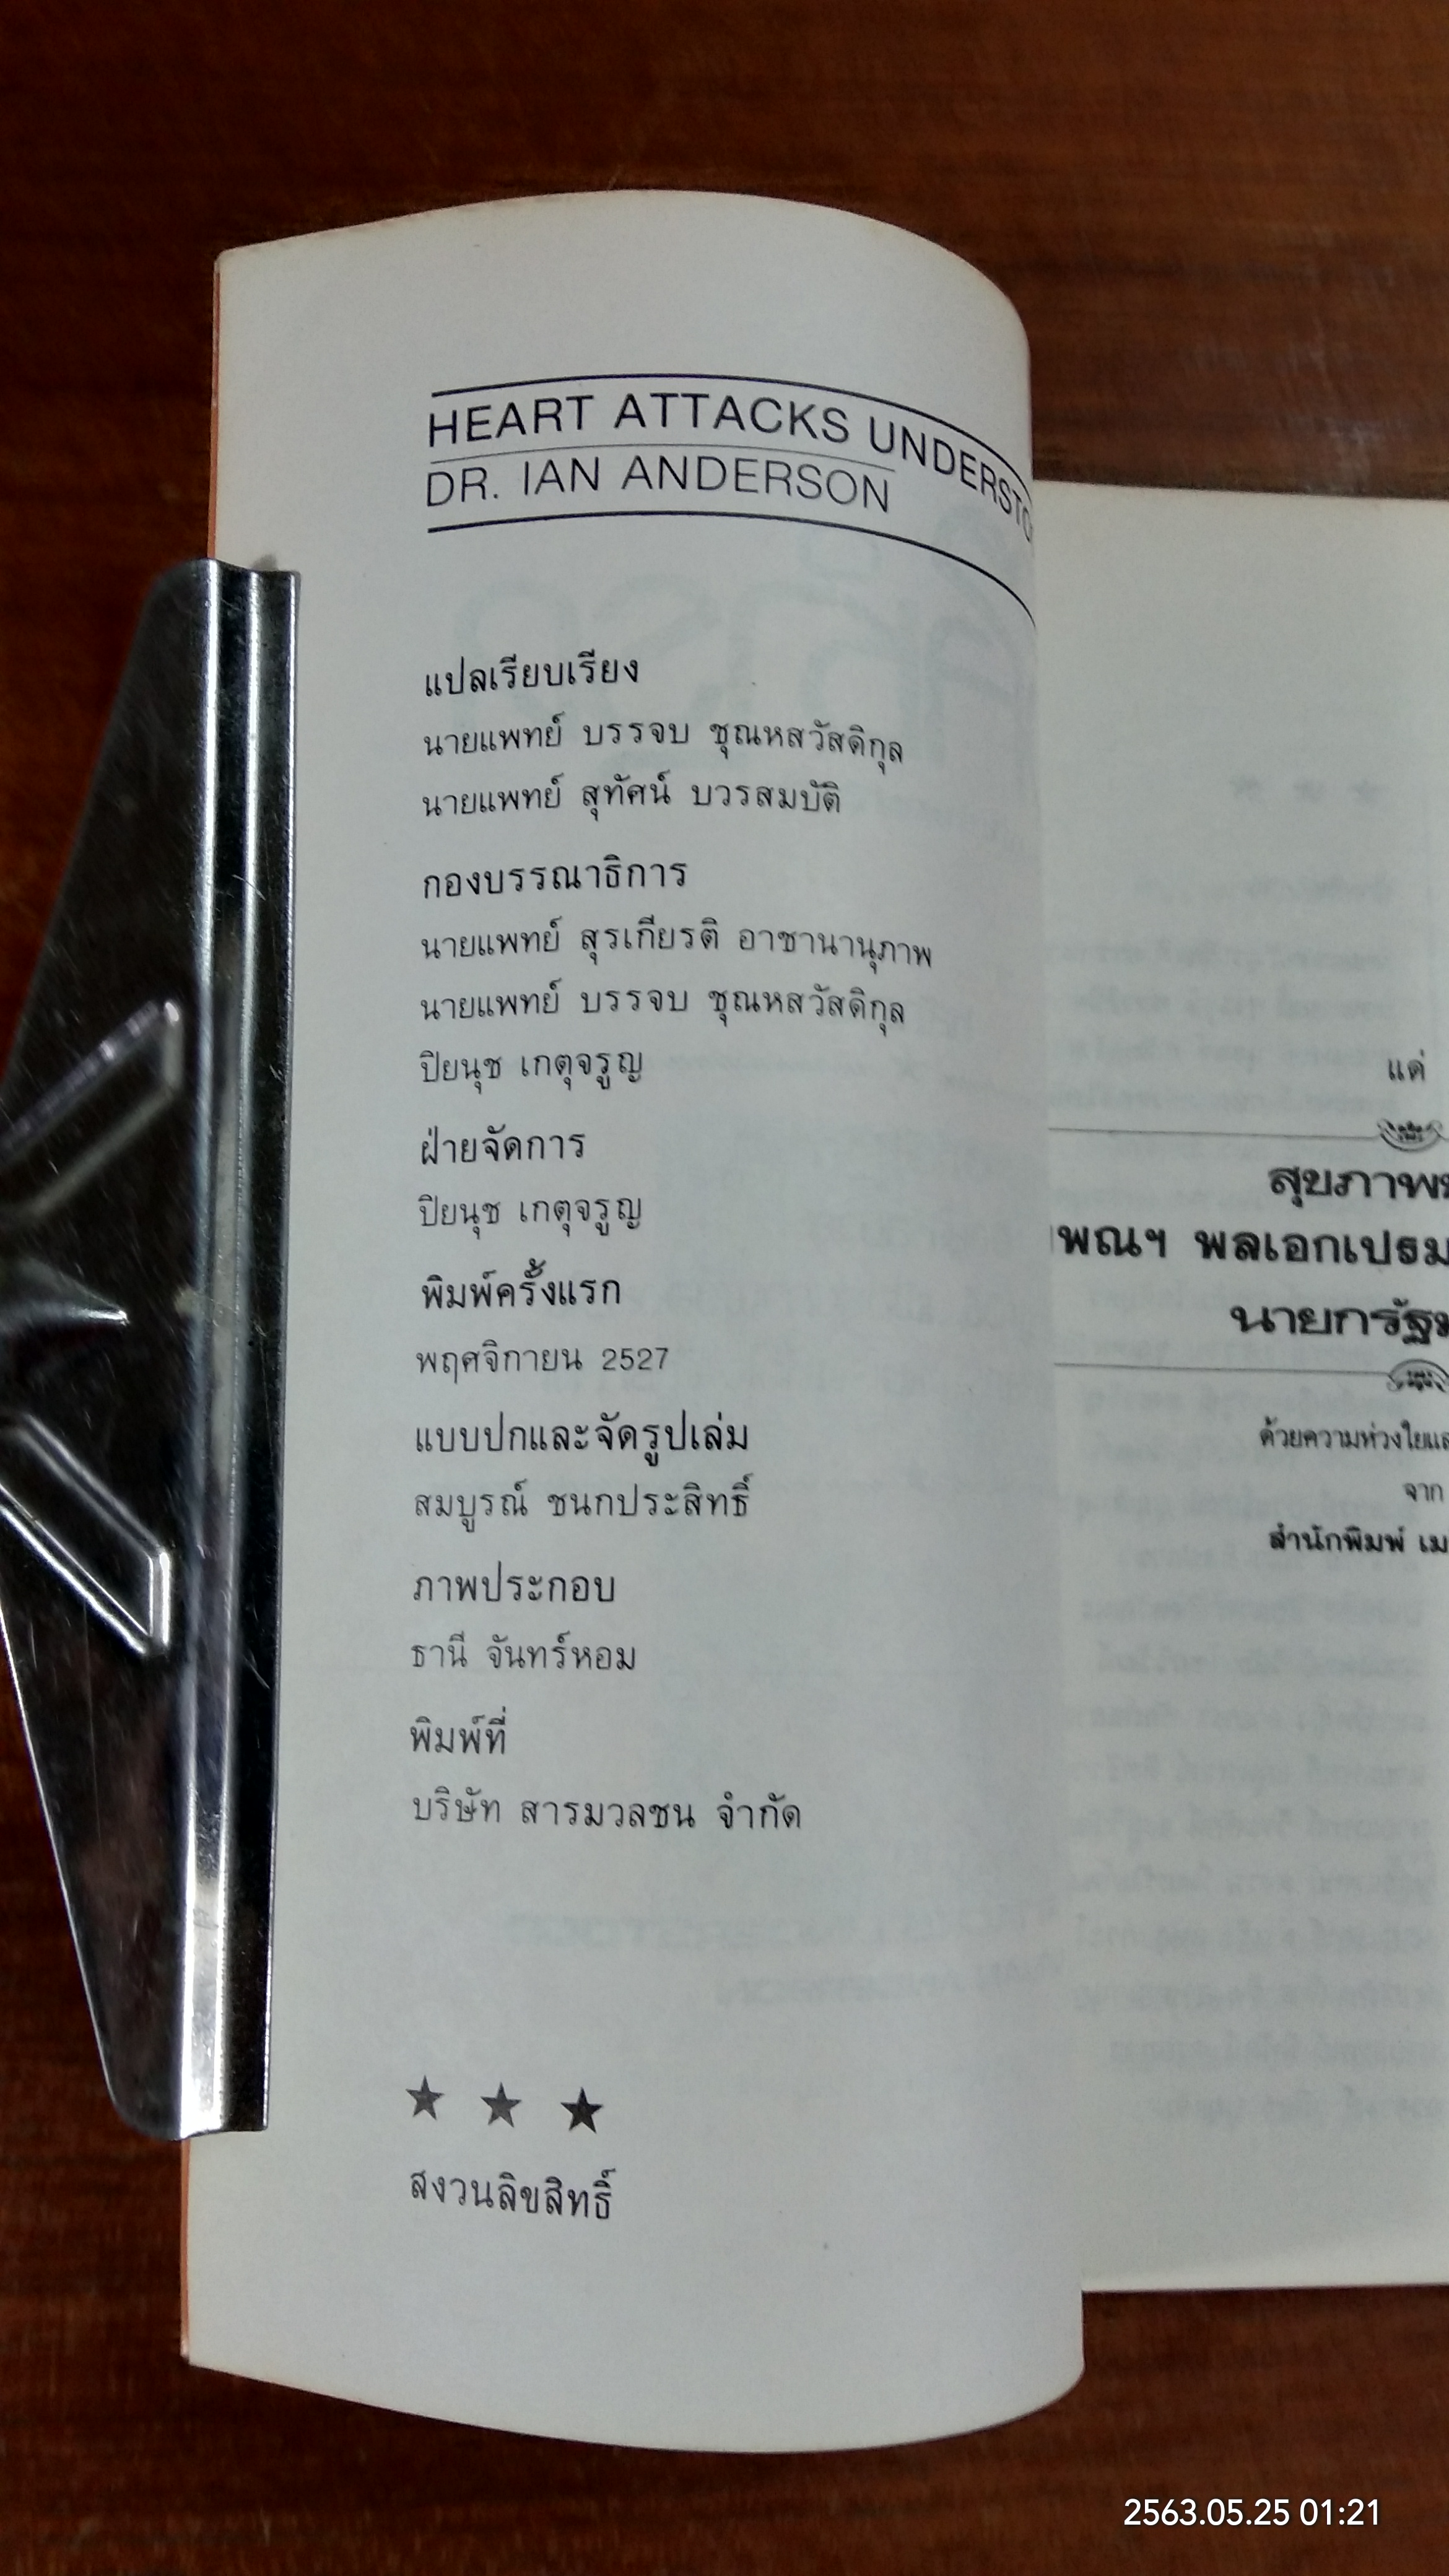 HEART ATTACKS
DR. IAN ANDERSON
แปลเรียบเรียง
นายแพทย์ บรรจบ ชุณหสวัสดิกุล
นายแพทย์ สุทัศน์ บวรสมบัติ
กองบรรณาธิการ
นายแพทย์ สุรเกียรติ อาชานานุภาพ
นายแพทย์ บรรจบ ชุณหสวัสดิกุล
ปิยนุช เกตุจรูญ
ฝ่ายจัดการ
ปิยนุช เกตุจรูญ
พิมพ์ครั้งแรก
พฤศจิกายน 2527
แบบปกและจัดรูปเล่ม
สมบูรณ์ ชนกประสิทธิ์
ภาพประกอบ
ธานี จันทร์หอม
พิมพ์ที่
บริษัท สารมวลชน จำกัด
★ ★ ★
สงวนลิขสิทธิ์
แด่
สุขภาพ
พณฯ พลเอกเปรม
นายกรัฐม
ด้วยความห่วงใยแล
จาก
สำนักพิมพ์ เม
2563.05.25 01:21